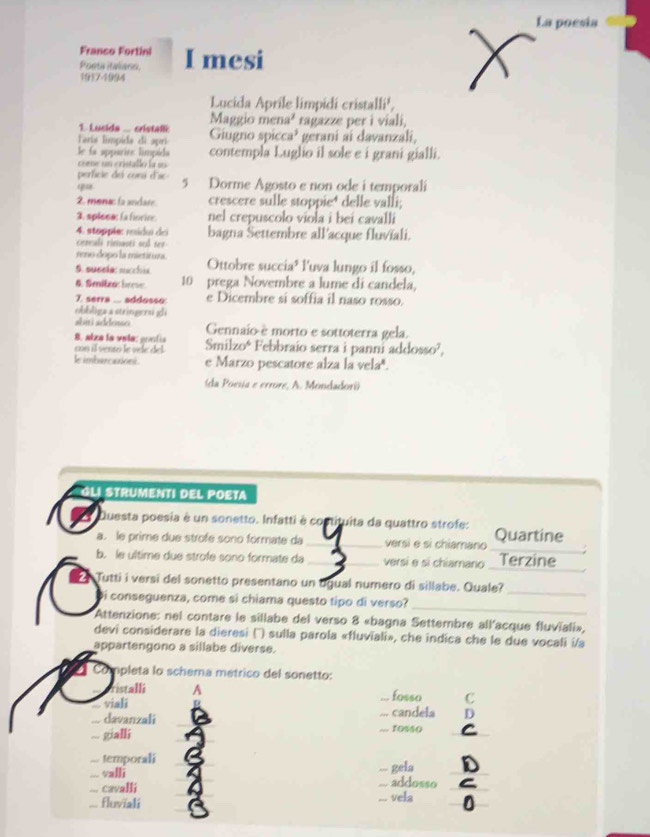 La poesia
Franco Fortini
Poeta italiano,
1917-1994
I mesi
Lucida Aprile limpidi cristalli¹,
Maggio mena² ragazze per i viali,
Giugno spicca³ gerani ai davanzali,
contempla Luglio il sole e i grani gialli.
5 Dorme Agosto e non ode i temporali
crescere sulle stoppie⁴ delle valli;
nel crepuscolo viola i bei cavalli
bagna Settembre all'acque fluviali.
Ottobre succia⁵ l'uva lungo il fosso,
10 prega Novembre a lume di candela,
e Dicembre si soffia il naso rosso.
Gennaio è morto e sottoterra gela.
Smilzo⁶ Febbraio serra i panni addosso⁷,
e Marzo pescatore alza la vela⁸.
(da Poesia e errore, A. Mondadori)
1. Lucida ... cristalli:
l'aria limpida di apri-
le fa apparire limpida
come un cristallo la su-
perficie dei corsi d'ac-
qua.
2. mena: fa andare.
3. spicca: fa fiorire.
4. stoppie: residui dei
cereali rimasti sul ter-
reno dopo la mietitura.
5. succia: succhia.
6. Smilzo: breve.
7. serra ... addosso:
obbliga a stringersi gli
abiti addosso.
8. alza la vela: gonfia
con il vento le vele del-
le imbarcazioni.
GLI STRUMENTI DEL POETA
Questa poesia è un sonetto. Infatti è costituita da quattro strofe:
a. le prime due strofe sono formate da 4 versi e si chiamano Quartine;
b. le ultime due strofe sono formate da 3 versi e si chiamano Terzine.
2 Tutti i versi del sonetto presentano un ugual numero di sillabe. Quale?
Di conseguenza, come si chiama questo tipo di verso?
Attenzione: nel contare le sillabe del verso 8 «bagna Settembre all'acque fluviali»,
devi considerare la dieresi (¨) sulla parola «fluviali», che indica che le due vocali i/a
appartengono a sillabe diverse.
Completa lo schema metrico del sonetto:
... cristalli A
... viali B
... davanzali
... gialli
... temporali
... valli
... cavalli
... fluviali
... fosso C
... candela D
... rosso C
... gela D
... addosso C
... vela D